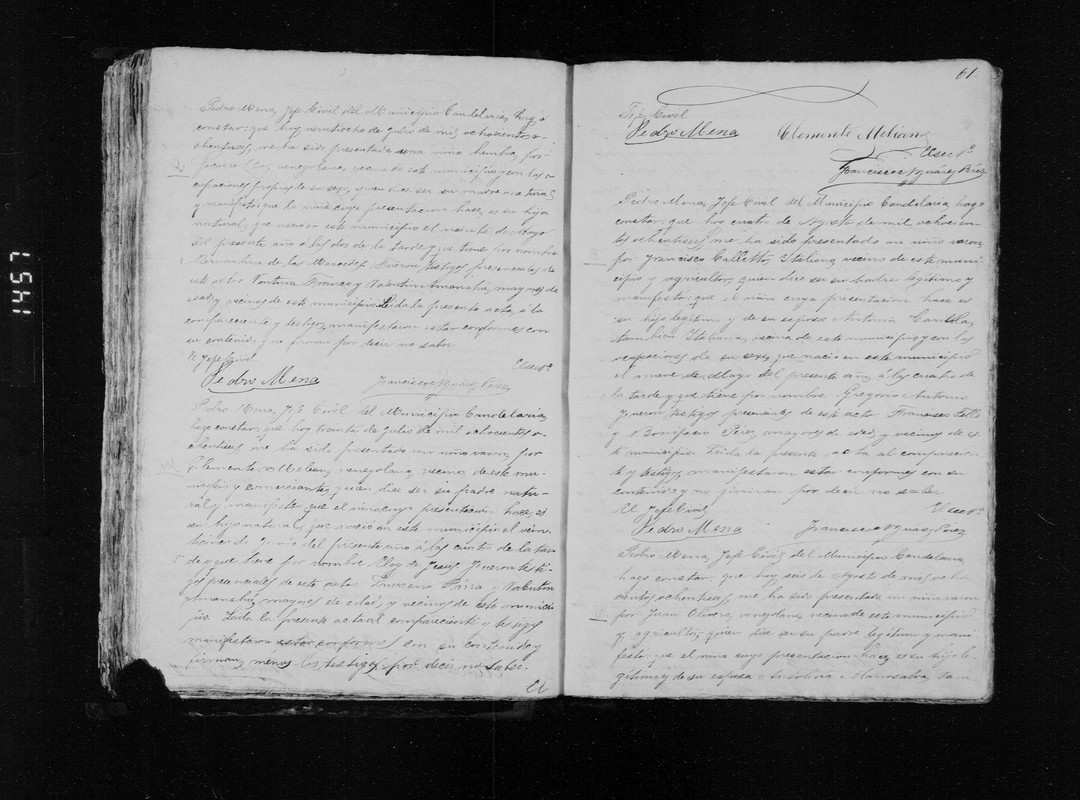 Pedro Mena, Jefe Civil del Municipio Candelaria, hago
constar: que hoy veintiocho de Julio de mil ochocientos o-
chentiseis, me ha sido presentada una niña hembra, por
venezolana, vecina de este municipio y con las o-
cupaciones propias de su sexo, quien dice ser su madre natural
y manifestó: que la niña cuya presentación hace, es su hija
natural, que nació en este municipio el veinte de Mayo
del presente año á las dos de la tarde y que tiene por nombre
Bernardina de la Mercedes. Fueron testigos presenciales de
este acto Ventura Franco y Valentin Amarante, mayores de
edad y vecinos de este municipio. Leida la presente acta, á la
compareciente y testigos, manifestaron estar conformes con
su contenido y no firman por decir no saber.
El Jefe Civil
El secrº
Pedro Mena
Francisco Nuñez Perez
Pedro Mena, Jefe Civil del Municipio Candelaria,
hago constar: que hoy treinta de Julio de mil ochocientos o-
chentiseis me ha sido presentado un niño varon, por
Clemente Melian, venezolano, vecino de este mu-
nicipio y comerciante, quien dice ser su padre natu-
ral y manifestó: que el niño cuya presentación hace, es
su hijo natural, que nació en este municipio el vein-
de Junio del presente año á las cuatro de la tar-
de y que tiene por nombre Eloy de Jesus. Fueron testi-
gos presenciales de este acto, y Valentin
mayores de edad y vecinos de este munici-
pio. Leida la presente acta al compareciente y testigos
manifestaron estar conformes con su contenido y
firman, menos los testigos por decir no saber.
El
61
Jefe Civil
Pedro Mena
Clemente Melian
El secrº
Francisco Nuñez Perez
Pedro Mena, Jefe Civil del Municipio Candelaria, hago
constar: que hoy cuatro de Agosto de mil ochocien-
tos ochentiseis me ha sido presentado un niño varon,
por Francisco Calletto, Italiano, vecino de este muni-
cipio y agricultor, quien dice ser su padre legítimo y
manifestó: que el niño cuya presentación hace es
su hijo legítimo y de su esposa Antonia
tambien Italiana, vecina de este municipio y con las
ocupaciones de su sexo, que nació en este municipio
el nueve de Mayo del presente año, á las cuatro de
la tarde y que tiene por nombre Gregorio Antonio.
Fueron testigos presenciales de este acto Francisco
y Bonifacio Perez, mayores de edad y vecinos de es-
te municipio. Leida la presente acta al comparecien-
te y testigos, manifestaron estar conformes con su
contenido y no firman por decir no saber.
El Jefe Civil
El secrº
Pedro Mena
Francisco Nuñez Perez
Pedro Mena, Jefe Civil del Municipio Candelaria,
hago constar: que hoy seis de Agosto de mil ocho-
cientos ochentiseis, me ha sido presentado un niño varon
por Juan Olivares, venezolano, vecino de este municipio
y agricultor, quien dice ser su padre legítimo y mani-
festó: que el niño cuya presentación hace, es su hijo le-
gítimo y de su esposa tam
1457